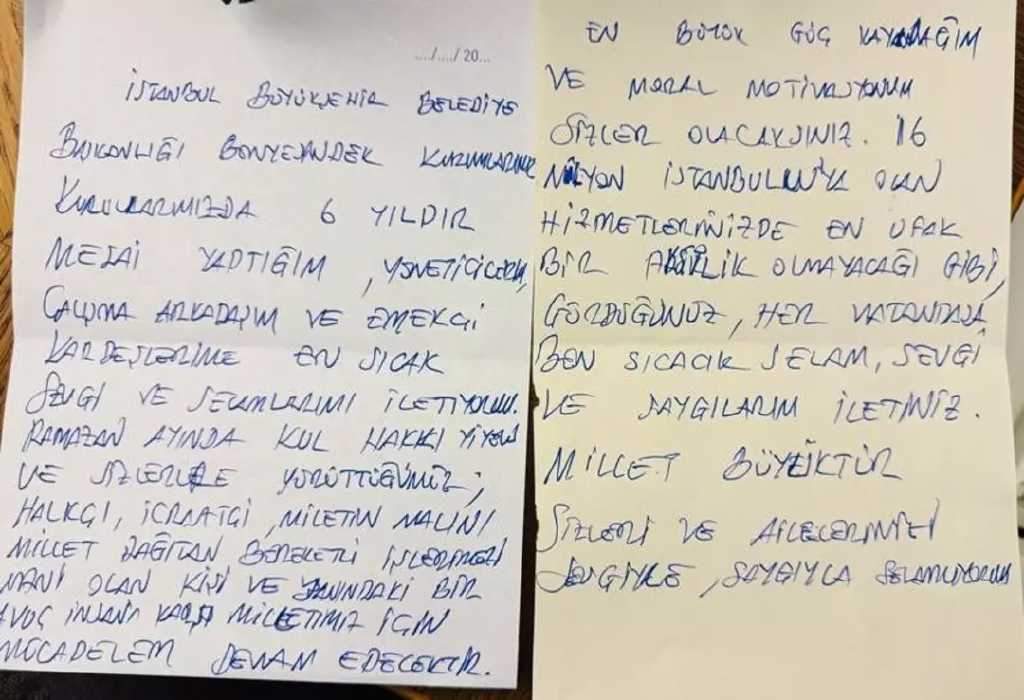 ..../..../ 20...
İSTANBUL BÜYÜKŞEHİR BELEDİYE
BAŞKANLIĞI BÜNYESİNDEK KURUMLARIMIZ
KURULLARIMIZDA 6 YILDIR
MESAİ YAPTIĞIM, YÖNETİCİLERİM,
ÇALIŞMA ARKADAŞIM VE EMEKÇİ
KARDEŞLERİME EN SICAK
SEVGİ VE SELAMLARIMI İLETİYORUM.
RAMAZAN AYINDA KUL HAKKI YİYEN
VE SİZLERLE YÜRÜTTÜĞÜMÜZ;
HALKÇI, İCRAATÇI, MİLETİN MALINI
MİLLET DAĞITAN BEREKETLİ İŞLERİMİZİ
MANİ OLAN KİŞİ VE YANINDAKİ BİR
AVUÇ İNSANA KARŞI MİLLETİMİZ İÇİN
MÜCADELEM DEVAM EDECEKTİR.
EN BÜYÜK GÜÇ KAYNAĞIM
VE MORAL MOTİVASYONUM
SİZLER OLACAKSINIZ. 16
MİLYON İSTANBULLUYA OLAN
HİZMETLERİNİZDE EN UFAK
BİR AKSİLİK OLMAYACAĞI GİBİ,
GÖRDÜĞÜNÜZ, HER VATANDAŞA
BEN SICACIK SELAM, SEVGİ
VE SAYGILARIM İLETİNİZ.
MİLLET BÜYÜKTÜR
SİZLERİ VE AİLELERİNİZİ
SEVGİYLE, SAYGIYLA SELAMLIYORUM